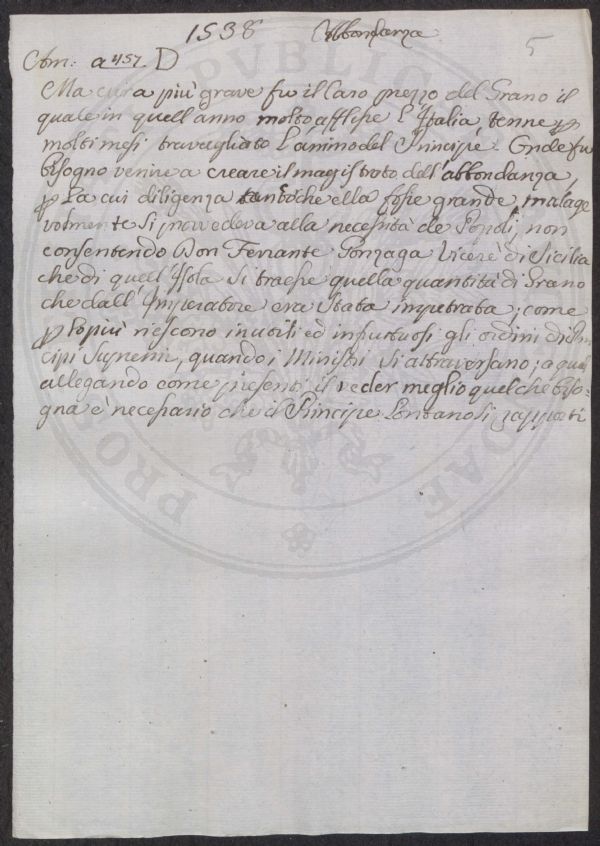 1538 Abbondanza
5
Am: a 457. D
Ma cura più grave fu il Caro prezzo del Grano il
quale in quell anno molto afflisse l'Italia tenne p
molti mesi travagliato l'animo del Principe. Onde fu
bisogno venire a creare il magistrato dell'abbondanza,
p la cui diligenza tantoche ella fosse grande, malage
volmente si provvedeva alla necessità de Popoli, non
consentendo Don Ferrante Gonzaga Vicerè di Sicilia
che di quell'Isola si traesse quella quantità di Grano
che dall'Imperatore era stata impetrata; come
p lo più riescono inutili ed infruttuosi gli ordini di Prn
cipi Supremi, quando i Ministri si attraversano, a quali
allegando come presenti il veder meglio quel che biso:
gna è necessario che il Principe lontano si rapporti
PUBLICA
PROS
DAE